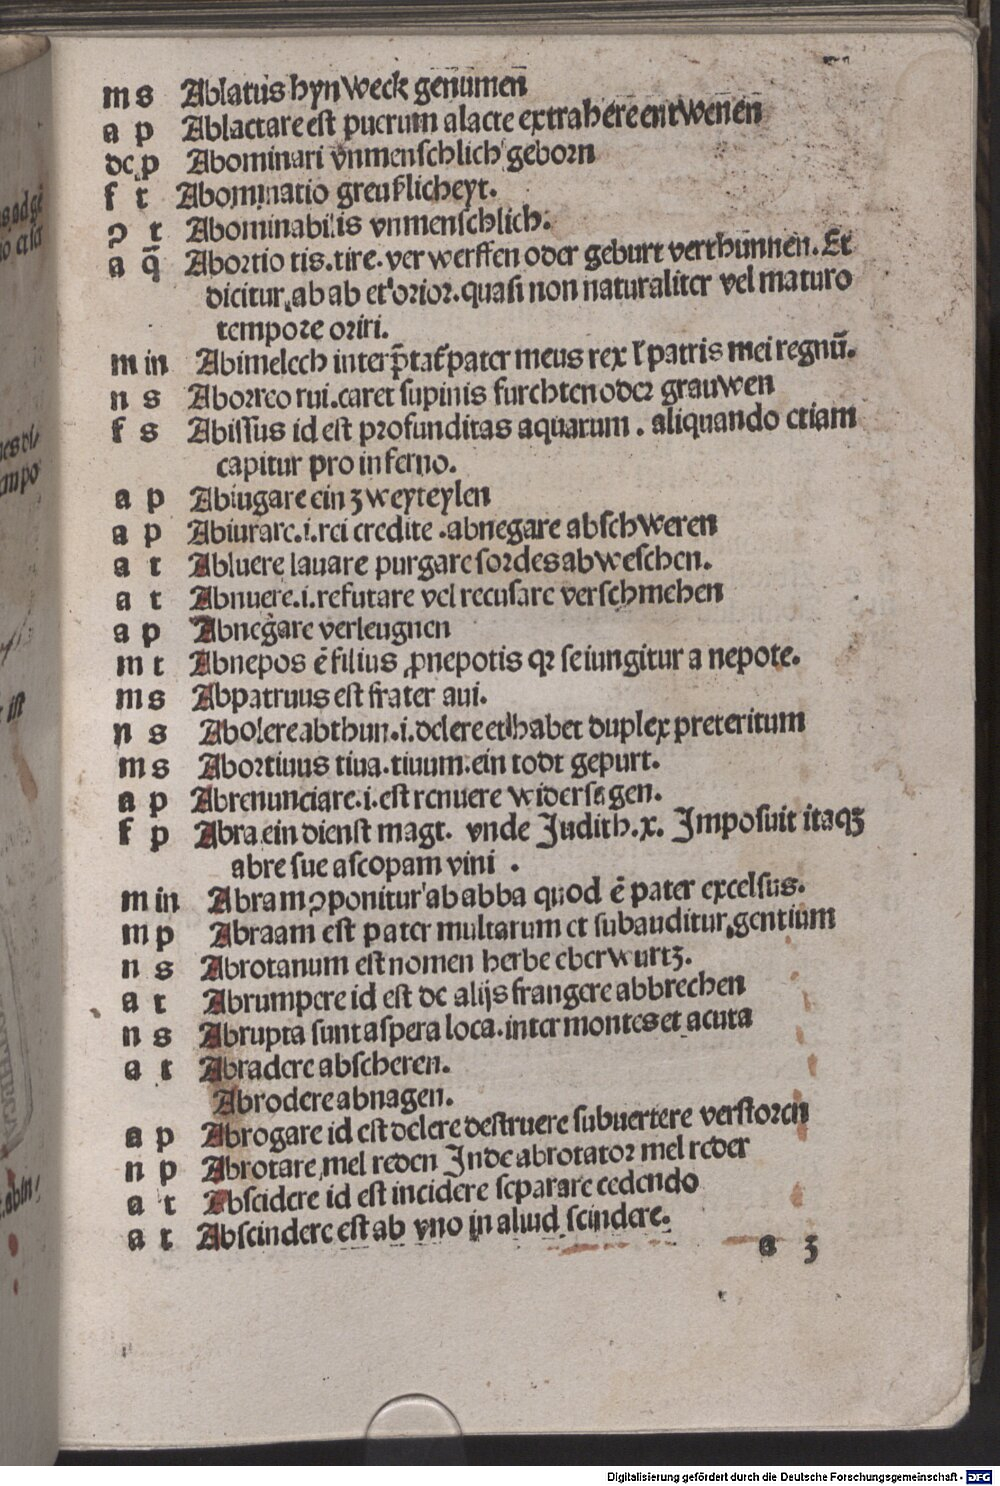 m s Ablatus hyn weck genumen̄
a p Ablactare est puerum a lacte extrahere entwenen̄
de p Abominari vnmenschlich geborn
f t Abominatio greuſlicheyt.
ꝯ t Abominabilis vnmenschlich.
a q̄ Abortio tis.tire.ver werffen oder geburt verthunnen. Et
dicitur ab ab et orior.quasi non naturaliter vel maturo
tempore oriri.
m in Abimelech interp̄tat̄ pater meus rex ł patris mei regnū.
n s Aborreo rui.caret supinis furchten oder grauwen
f s Abissus id est profunditas aquarum . aliquando etiam
capitur pro inferno.
a p Abiugare ein zweyteylen
a p Abiurare.i.rei credite .abnegare abschweren
a t Abluere lauare purgare sordes abweschen.
a t Abnuere.i.refutare vel recusare verschmehen
a p Abnegare verleugnen
m t Abnepos ē filius ꝓnepotis qꝛ seiungitur a nepote.
m s Abpatruus est frater aui.
n s Abolere abthun.i.delere et habet duplex preteritum
m s Abortiuus tiua.tiuum.ein todt gepurt.
a p Abrenunciare.i.est renuere widersegen.
f p Abra ein dienst magt. vnde Judith.x. Imposuit itaqꝫ
abre sue ascopam vini .
m in Abram ꝯponitur ab abba quod ē pater excelsus.
m p Abraam est pater multarum et subauditur gentium
n s Abrotanum est nomen herbe eberwurtz.
a t Abrumpere id est de alijs frangere abbrechen
n s Abrupta sunt aspera loca.inter montes et acuta
a t Abradere abscheren.
Abrodere abnagen.
a p Abrogare id est delere destruere subuertere verstoren
n p Abrotare mel reden Inde abrotator mel reder
a t Abscidere id est incidere separare cedendo
a t Abscindere est ab vno in aliud scindere.
a 3
Digitalisierung gefördert durch die Deutsche Forschungsgemeinschaft - DFG